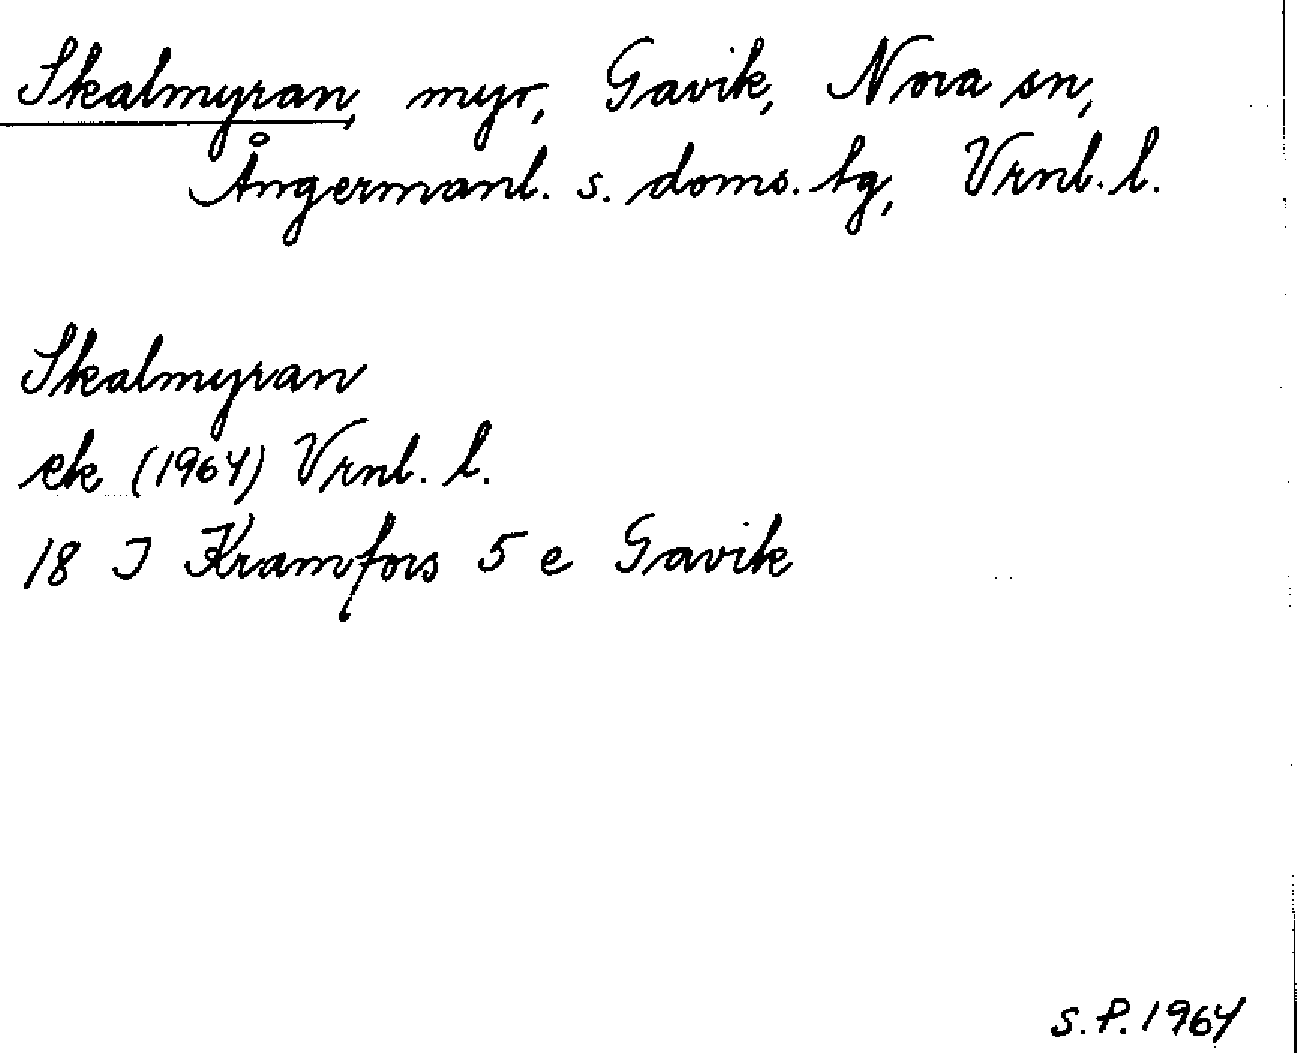 Skalmyran, myr, Gavik, Nora sn,
Ångermanl. s. doms. tg, Vrnl. l.
Skalmyran
ek (1964) Vrnl. l.
18 J Kramfors 5 e Gavik
S.P. 1964